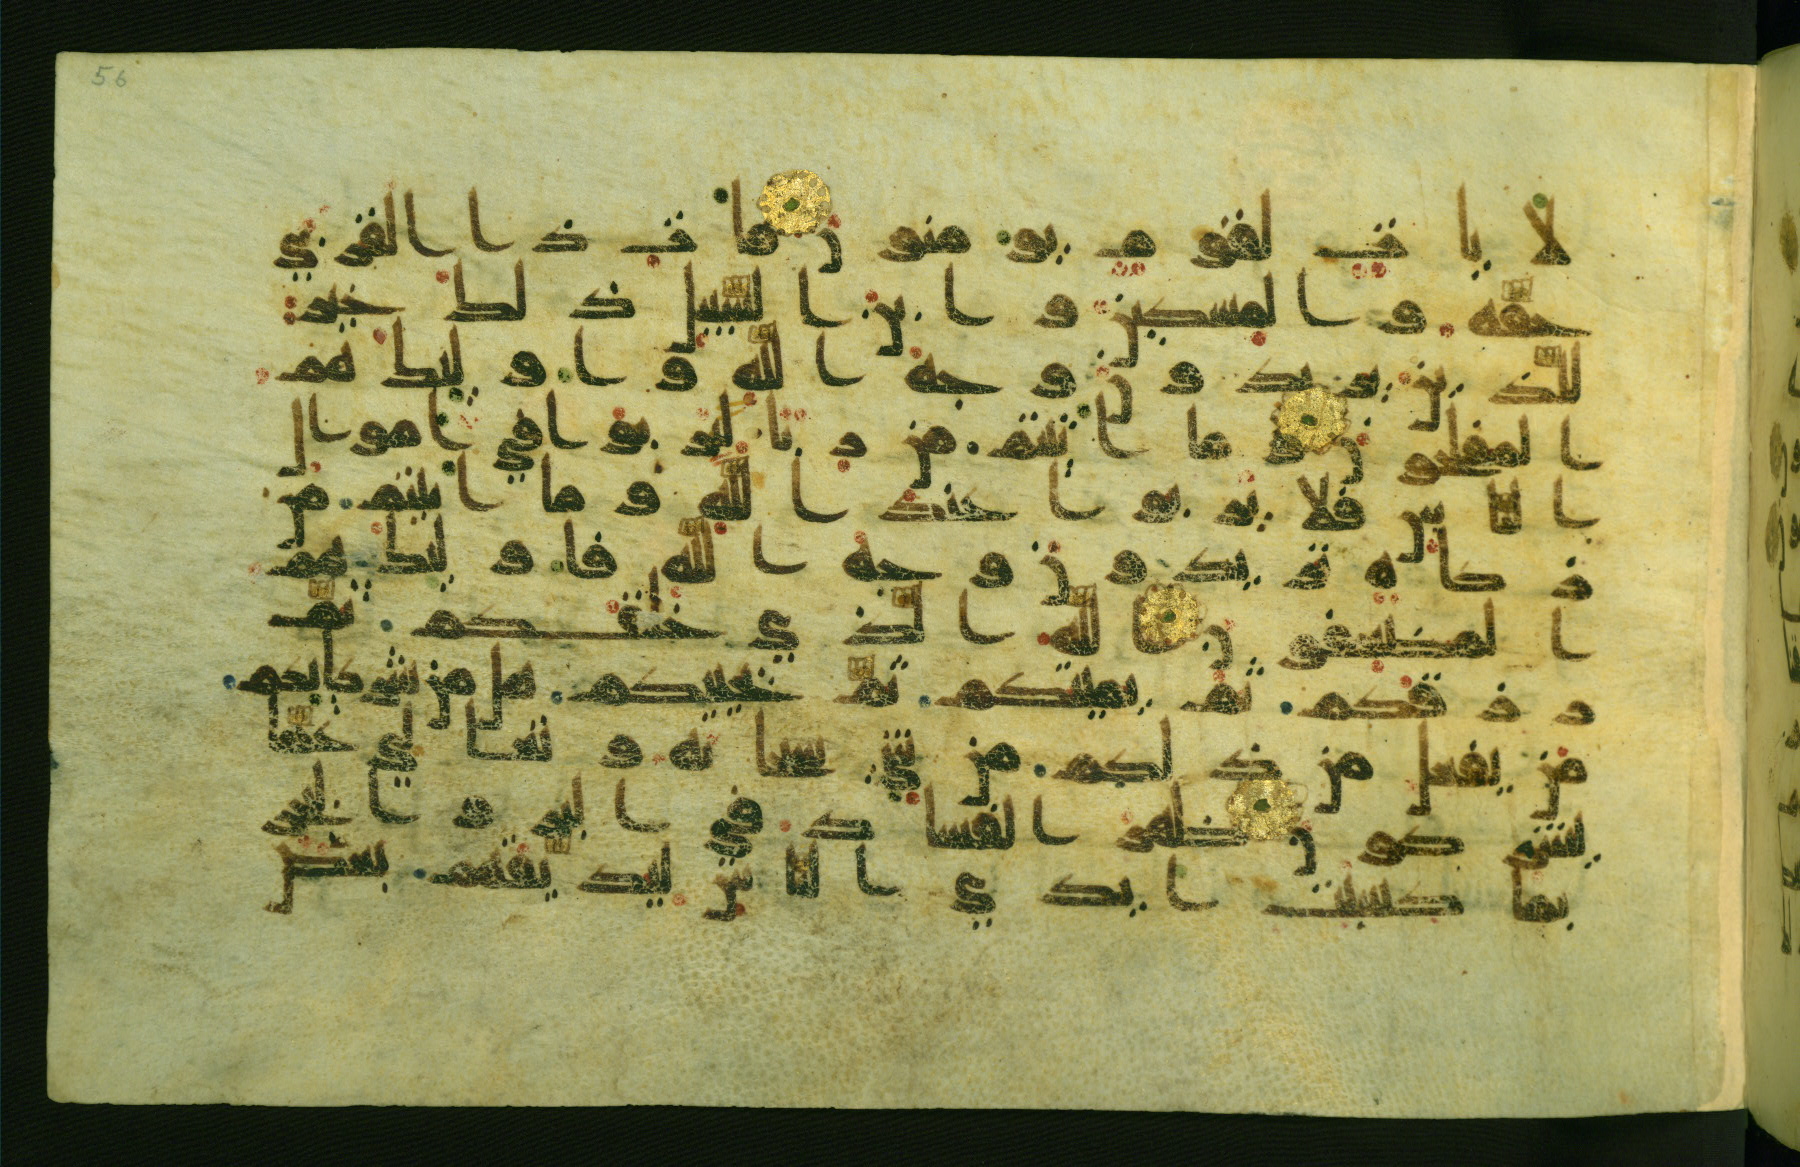 56
لايات لقوم يومنون فات ذا القربي
حقه والمسكين وابن السبيل ذلك خير
للذين يريدون وجه الله واوليك هم
المفلحون وما اتيتم من ربا ليربوا في اموال
الناس فلا يربوا عند الله وما اتيتم من
زكاه تريدون وجه الله فاوليك هم
المضعفون الله الذي خلقكم ثم
رزقكم ثم يميتكم ثم يحييكم هل من شركايكم
من يفعل من ذلكم من شي سبحانه وتعالي عما
يشركون ظهر الفساد في البر والبحر
بما كسبت ايدي الناس ليذيقهم بعض